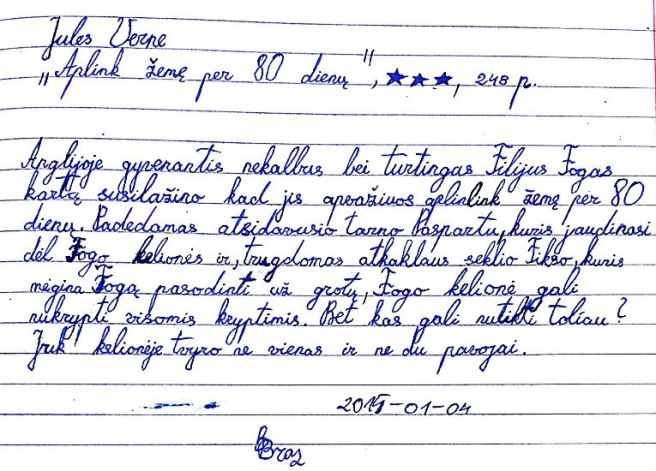 Jules Verne
„Aplink žemę per 80 dienų", ★★★, 248 p.
Anglijoje gyvenantis nekalbus bei turtingas Filijus Fogas
kartą susilažino kad jis apvažiuos aplinlink žemę per 80
dienų. Padedamas atsidavusio tarno Paspartu, kuris jaudinasi
dėl Fogo kelionės ir, trugdomas atkaklaus seklio Fikso, kuris
mėgina Fogą pasodinti už grotų, Fogo kelionė gali
nukrypti visomis kryptimis. Bet kas gali nutikti toliau?
Juk kelionėje tvyro ne vienas ir ne du pavojai.
2015-01-04